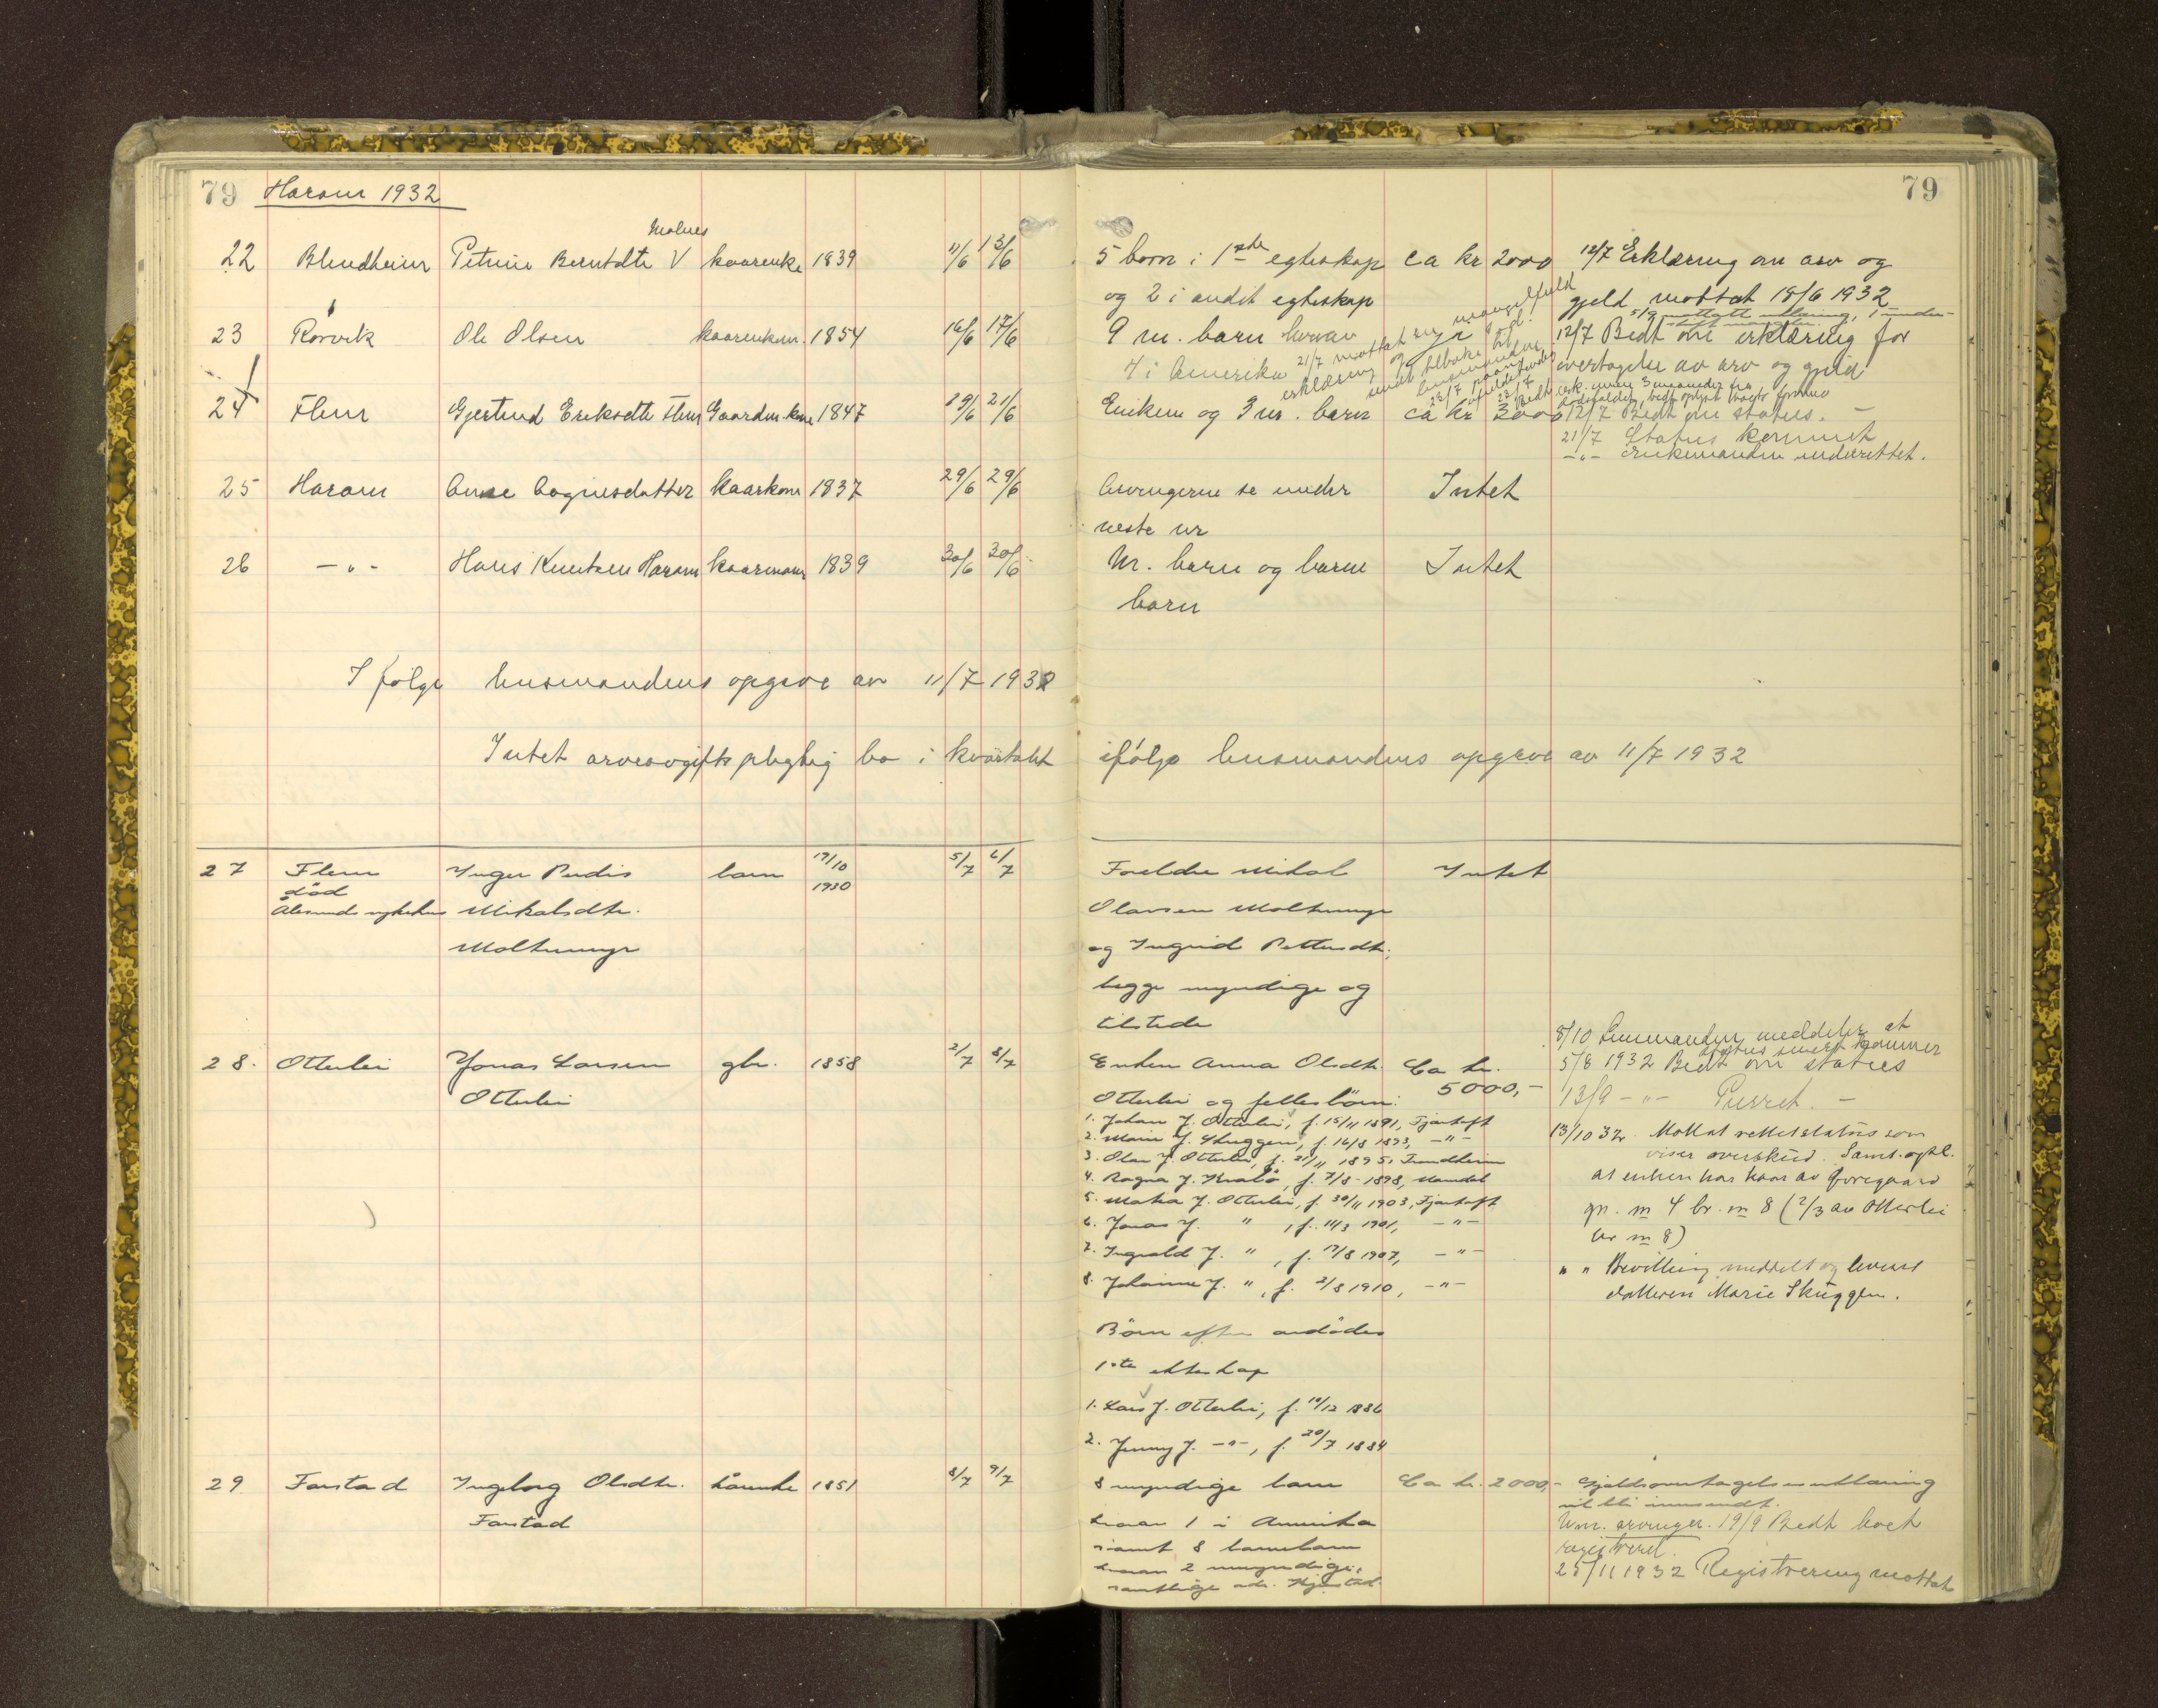 79 Haram 1932
79
Molnes
22 Blindheim Petrine Berntdtr V kaarenke 1839 11/6 13/6 5 born i 1ste egteskap ca kr 2000 12/7 Erklæring om arv og
og 2 i andet egteskap gjeld mottat 18/6 1932
23 Rørvik Ole Olsen kaarenkem. 1854 16/6 17/6 9 m. barn hvorav 12/7 Bedt om erklæring for
4 i Amerika 21/7 mottat en mangelfuld overtagelse av arv og gjeld
erklæring og
sendt tilbake til
lensmanden
24 Flem Gjertrud Eriksdtr Flem Gaardm.kone 1847 19/6 21/6 Enkem og 3 m. barn ca kr 3000 12/7 Bedt om status. —
21/7 Status kommet
—"— Enkemanden underrettet.
25 Haram Anne Aagnesdatter kaarkone 1837 29/6 29/6 Arvingerne se under Intet
neste nr
26 —"— Hans Knutsen Haram kaarmann 1839 30/6 30/6 M. barn og barne Intet
barn
Ifølge lensmandens opgave av 11/7 1932
Intet arveavgiftspligtig bo i kvartalet ifølge lensmandens opgave av 11/7 1932
27 Flem Inger Perdis barn 17/10 5/7 6/7 Foreldre Mikal Intet
død 1930
Ålesunds sykehus Mikalsdtr. Olavsen Molternyr
Molternyr og Ingrid Pettersdtr.,
begge myndige og
tilstede
8/10 Lensmanden meddeler at
status snart kommer
28. Otterlei Jonas Larsen gbr. 1858 2/7 8/7 Enken Anna Olsdtr. Ca kr. 5/8 1932 Bedt om status
Otterlei Otterlei og fellesbörn: 5000,- 13/9 —"— Purret. —
1. Johan J. Otterlei, f. 15/11 1891, Fjørtoft 13/10 32. Mottat rettet status som
2. Marie J. Skuggen, f. 16/8 1893, —"— viser overskud. Samt. opl.
3. Olav J. Otterlei, f. 21/11 1895, Trondheim
4. Ragna J. Kralø, f. 7/8 1898, Mandal at enken har kaar av foregaard
5. Marta J. Otterlei, f. 30/11 1903, Fjørtoft gn. nr 4 br. nr 8 (2/3 av Otterlei
6. Jonas J. " , f. 11/3 1901, —"— br nr 8)
7. Ingvald J. " , f. 17/8 1907, —"— " " Bevilling meddelt og levert
8. Johanne J. " , f. 2/8 1910, —"— datteren Marie Skuggen.
Börn efter avdødes
1ste ekteskap
1. Lars J. Otterlei, f. 19/12 1886
2. Jenny J. —"—, f. 20/7 1884
29 Farstad Ingeborg Olsdtr. kårenke 1851 8/7 9/7 8 myndige barn Ca kr. 2000,- Gjeldsovertagelseserklæring
Farstad vil bli innsendt.
hvorav 1 i Amerika Um. arvinger. 19/9 Bedt boet
samt 8 barnebarn registreret.
hvorav 2 umyndige, 25/11 1932 Registrering mottat
samtlige adr.